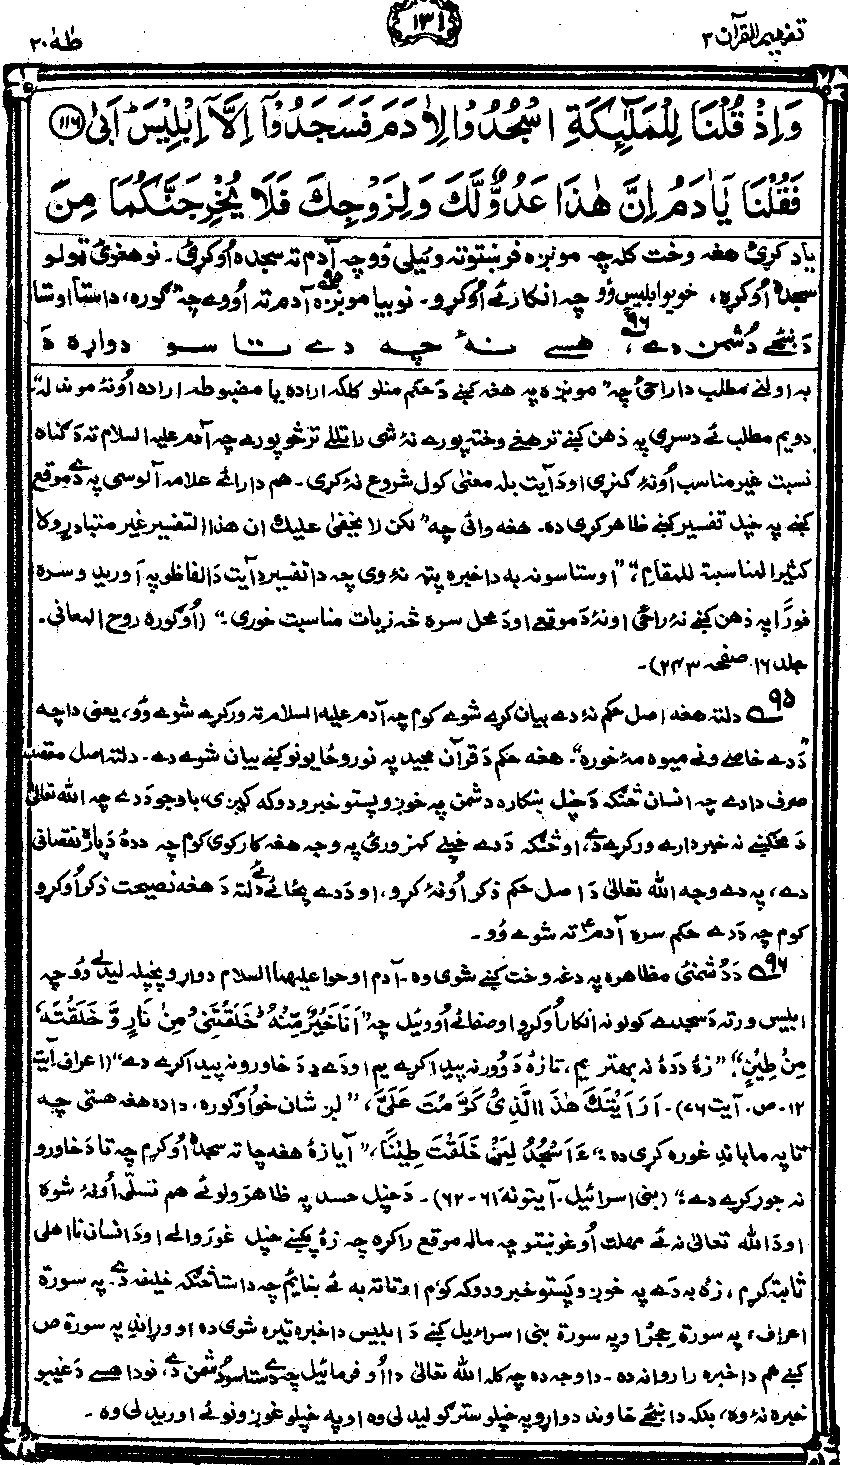 تفهيم القرآن ٣
١٣١
طٰهٰ ٢٠
وَاِذْ قُلْنَا لِلْمَلٰٓئِكَةِ اسْجُدُوْا لِاٰدَمَ فَسَجَدُوْٓا اِلَّآ اِبْلِيْسَ اَبٰى ١١٦
فَقُلْنَا يٰٓاٰدَمُ اِنَّ هٰذَا عَدُوٌّ لَّكَ وَلِزَوْجِكَ فَلَا يُخْرِجَنَّكُمَا مِنَ
ياد كړئ هغه وخت كله چه مونږه فرښتوته وئيلى ؤو چه آدم ته سجده اُوكړئ۔ نو هغوئ ټولو
سجده اُوكړه، خو يو ابليس ؤو چه انكار ئے اُوكړو۔ نو بيا مونږه آدم ته اُووے چه گوره، دا ستا او ستا
دَ ښځے دُشمن دے، هسے نهٔ چه دے تاسو دواړه دَ
به اولنے مطلب دا راځى چه مونږه په هغه كښے دَ حكم منلو كلكه اراده يا مضبوطه اراده اُونهٔ موندله
دويم مطلب ئے دسړى په ذهن كښے ترهغے وخته پورے نهٔ شى راتللے ترڅو پورے چه آدم عليه السلام ته دَ گناه
نسبت غيرمناسب اُونهٔ گنړى او دَ آيت بله معنىٰ كول شروع نهٔ كړى۔ هم دا رائے علامه آلوسى په دے موقع
كښے په خپل تفسير كښے ظاهر كړى ده۔ هغه وائى چه لكن لا يخفىٰ عليك ان هذا التفسير غير متبادر ولا
كثير المناسبة للمقام، "او ستاسو نه به دا خبره پټه نهٔ وى چه دا تفسير دَ آيت دَ الفاظو په آوريدو سره
فورًا په ذهن كښے نهٔ راځى او نهٔ دَ موقعے او دَ محل سره څه زيات مناسبت خورى۔" (اُوگوره روح المعانى۔
جلد ١٦ صفحه ٢٤٣)۔
٩٥ دلته هغه اصل حكم نهٔ دے بيان كړے شوے كوم چه آدم عليه السلام ته وركړے شوے وُو، يعنى دا چه
"دَ دے خاصے ونے ميوه مهٔ خوره"۔ هغه حكم دَ قرآن مجيد په نورو ځايونو كښے بيان شوے دے۔ دلته اصل مقصد
صرف دا دے چه انسان څنگه دَ خپل ښكاره دشمن په خوږو پستو خبرو دوكه كيږى، باوجود دَ دے چه الله تعالىٰ
دَ مخكښے نه خبردارے وركړے دے، او څنگه دَ دے خپلے كمزورئ په وجه هغه كار كوى كوم چه دَ دهٔ دَ پاره نقصانى
دے، په دے وجه الله تعالىٰ دَ اصل حكم ذكر اُونهٔ كړو، او دَ دے پځائے ئے دلته دَ هغه نصيحت ذكر اُوكړو
كوم چه دَ دے حكم سره آدمؑ ته شوے وُو۔
٩٦ دَ دُشمنئ مظاهره په دغه وخت كښے شوى وه۔ آدم او حوا عليهما السلام دواړو پخپله ليدلے وُو چه
ابليس ورته دَ سجدے كولو نه انكار اُوكړو او صفائے اُووئيل چه "اَنَا خَيْرٌ مِّنْهُ خَلَقْتَنِىْ مِنْ نَّارٍ وَّ خَلَقْتَهٗ
مِنْ طِيْنٍ"۔ "زهٔ دَ دهٔ نه بهتر يم، تا زهٔ دَ وور نه پيدا كړے يم او دے دِ دَ خاورو نه پيدا كړے دے" (اعراف آيت
١٢۔ ص۔ آيت ٧٦)۔ اَرَاَيْتَكَ هٰذَا الَّذِىْ كَرَّمْتَ عَلَىَّ، "لږ شان خو اُوگوره، دا ده هغه هستى چه
تا په ما باندِ غوره كړى ده"، ءَاَسْجُدُ لِمَنْ خَلَقْتَ طِيْنًا، "آيا زهٔ هغه چا ته سجده اُوكړم چه تا دَ خاورو
نه جوړ كړے دے" (بنى اسرائيل۔ آيتونه ٦١-٦٢)۔ دَ خپل حسد په ظاهرولو ئے هم تسلّى اُونهٔ شوه
او دَ الله تعالىٰ نه ئے مهلت اُوغوښتو چه ما له موقع راكړه چه زهٔ پكښے خپل غوره والے او دَ انسان نا اهلى
ثابته كړم، زهٔ به دَے په خوږو پستو خبرو دوكه كوم او تا ته به ئے ښايم چه دا ستا څنگه خليفه دے۔ په سورة
اعراف، په سورة حجر او په سورة بنى اسرائيل كښے دَ ابليس دا خبره تيره شوى ده او وړاندِ په سورة ص
كښے هم دا خبره را روانه ده۔ دا وجه ده چه كله الله تعالىٰ دا اُوفرمائيل چه دے ستاسو دُشمن دے، نو دا هسے دَ غيبو
خبره نهٔ وه، بلكه دا ښځے خاوند دواړو په خپلو سترگو ليدلى وه او په خپلو غوږونو ئے اوريدلى وه۔